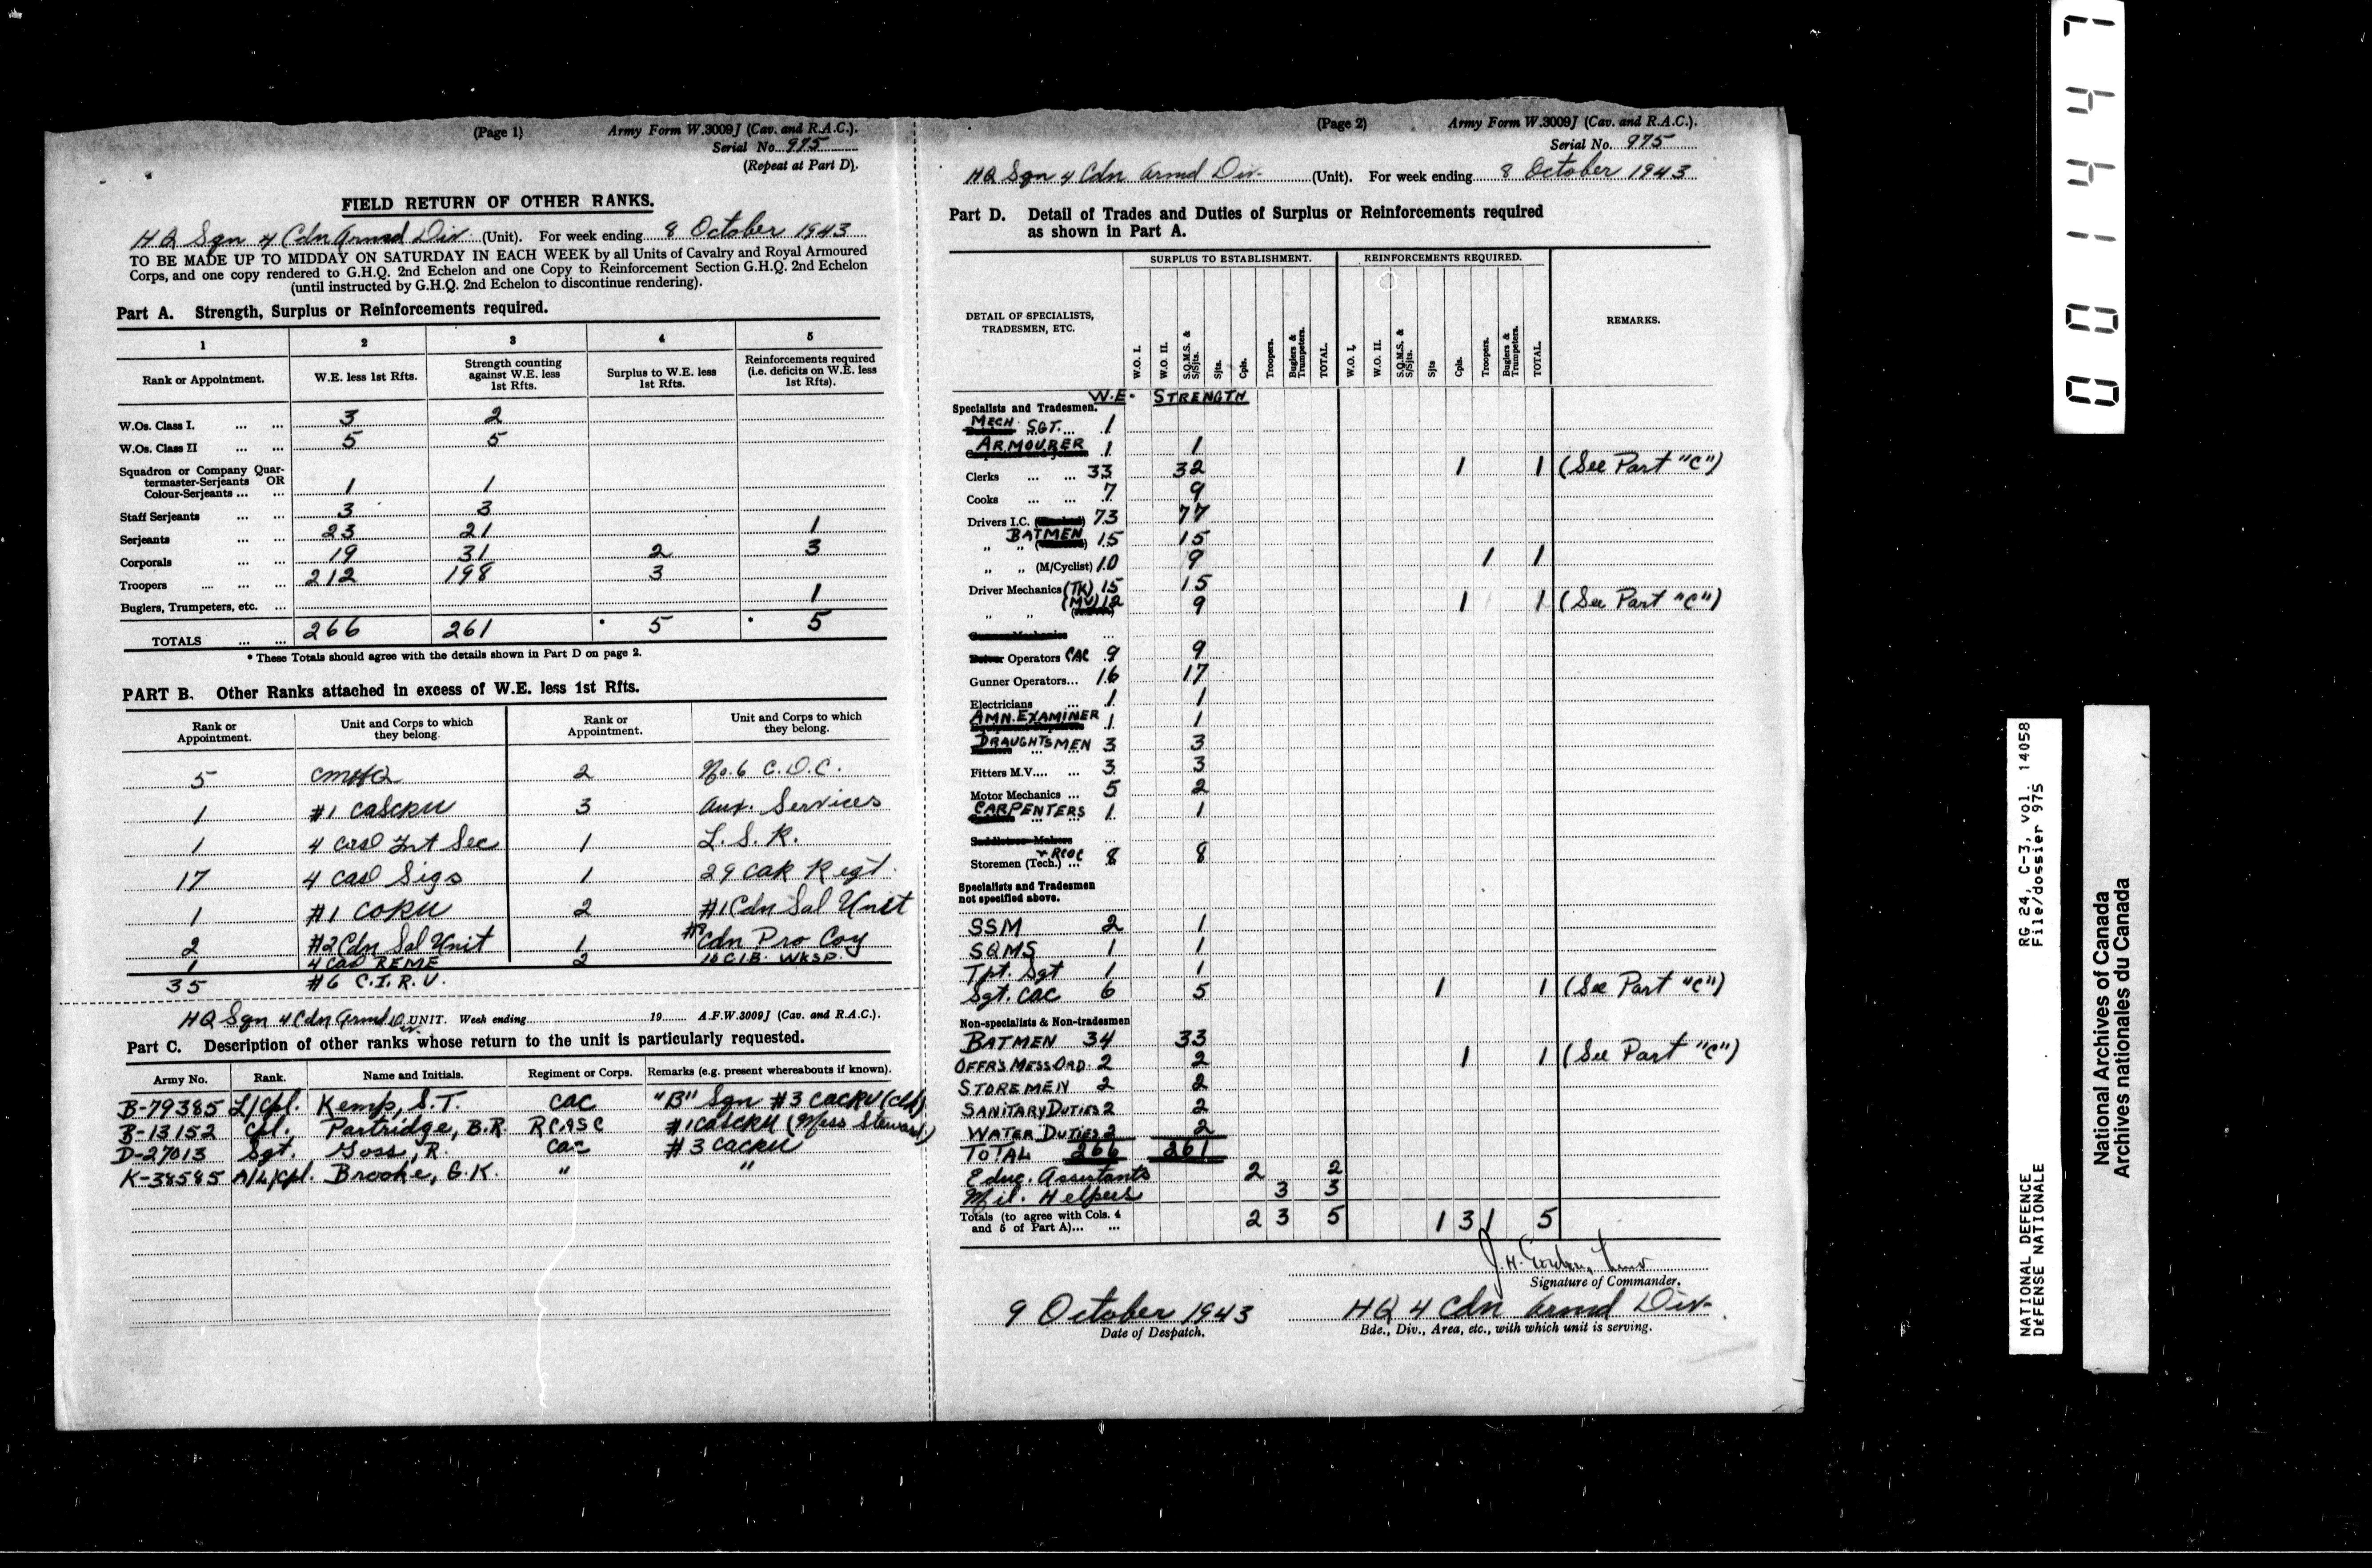 (Page 1) Army Form W.3009J (Cav. and R.A.C.).
Serial No. 975
(Repeat at Part D).
FIELD RETURN OF OTHER RANKS.
HQ Sqn 4 Cdn Armd Div (Unit). For week ending 8 October 1943
TO BE MADE UP TO MIDDAY ON SATURDAY IN EACH WEEK by all Units of Cavalry and Royal Armoured
Corps, and one copy rendered to G.H.Q. 2nd Echelon and one Copy to Reinforcement Section G.H.Q. 2nd Echelon
(until instructed by G.H.Q. 2nd Echelon to discontinue rendering).
Part A. Strength, Surplus or Reinforcements required.
1 2 3 4 5
Rank or Appointment. W.E. less 1st Rfts. Strength counting against W.E. less 1st Rfts. Surplus to W.E. less 1st Rfts. Reinforcements required (i.e. deficits on W.E. less 1st Rfts).
W.Os. Class I. ... ... 3 2
W.Os. Class II ... ... 5 5
Squadron or Company Quar-
termaster-Serjeants OR
Colour-Serjeants ... ... 1 1
Staff Serjeants ... ... 3 3
Serjeants ... ... 23 21 1
Corporals ... ... 19 31 2 3
Troopers ... ... ... 212 198 3
Buglers, Trumpeters, etc. ... 1
TOTALS ... ... 266 261 * 5 * 5
* These Totals should agree with the details shown in Part D on page 2.
PART B. Other Ranks attached in excess of W.E. less 1st Rfts.
Rank or Appointment. Unit and Corps to which they belong. Rank or Appointment. Unit and Corps to which they belong.
5 CMHQ 2 No. 6 C.D.C.
1 #1 CASCRU 3 Aux. Services
1 4 CAD Int Sec 1 L.S.R.
17 4 CAD Sigs 1 29 CAR Regt.
1 #1 CORU 2 #1 Cdn Sal Unit
2 #2 Cdn Sal Unit 1 Cdn Pro Coy
1 4 CAD REME 2 10 C.I.B. WKSP.
35 #6 C.I.R.U.
HQ Sqn 4 Cdn Armd Div UNIT. Week ending 19 A.F.W.3009J (Cav. and R.A.C.).
Part C. Description of other ranks whose return to the unit is particularly requested.
Army No. Rank. Name and Initials. Regiment or Corps. Remarks (e.g. present whereabouts if known).
B-79385 L/Cpl. Kemp, S.T. CAC "B" Sqn #3 CACRU (Clk)
B-13152 Cpl. Partridge, B.R. RCASC #1 CASCRU (Mess Steward)
D-27013 Sgt. Goss, R. CAC #3 CACRU
K-38585 A/L/Cpl. Brooke, G.K. " "
(Page 2) Army Form W.3009J (Cav. and R.A.C.).
Serial No. 975
HQ Sqn 4 Cdn Armd Div. (Unit). For week ending 8 October 1943
Part D. Detail of Trades and Duties of Surplus or Reinforcements required
as shown in Part A.
SURPLUS TO ESTABLISHMENT. REINFORCEMENTS REQUIRED.
DETAIL OF SPECIALISTS, TRADESMEN, ETC. REMARKS.
W.O. I. W.O. II. S.Q.M.S. & S/Sjts. Sjts. Cpls. Troopers. Buglers & Trumpeters. TOTAL. W.O. I. W.O. II. S.Q.M.S. & S/Sjts. Sjts Cpls. Troopers. Buglers & Trumpeters. TOTAL.
W.E. STRENGTH
Specialists and Tradesmen.
MECH. SGT. ... 1
ARMOURER 1 1
Clerks ... ... 33 32 1 1 (See Part "C")
Cooks ... ... 7 9
Drivers I.C. 73 77
" " BATMEN 15 15
" " (M/Cyclist) 10 9 1 1
Driver Mechanics (TK) 15 15
" " (MV) 12 9 1 1 (See Part "C")
Operators CAC 9 9
Gunner Operators... 16 17
Electricians ... 1 1
AMN. EXAMINER 1 1
DRAUGHTSMEN 3 3
Fitters M.V.... ... 3 3
Motor Mechanics ... 5 2
CARPENTERS 1 1
Storemen (Tech.) & RCOC ... 8 8
Specialists and Tradesmen
not specified above.
SSM 2 1
SQMS 1 1
Tpt. Sgt 1 1
Sgt. CAC 6 5 1 1 (See Part "C")
Non-specialists & Non-tradesmen
BATMEN 34 33
OFFRS MESS ORD. 2 2 1 1 (See Part "C")
STOREMEN 2 2
SANITARY DUTIES 2 2
WATER DUTIES 2 2
TOTAL 266 261
Educ. Assistants 2 2
Mil. Helpers 3 3
Totals (to agree with Cols. 4
and 5 of Part A)... ... 2 3 5 1 3 1 5
Signature of Commander.
9 October 1943 HQ 4 Cdn Armd Div.
Date of Despatch. Bde., Div., Area, etc., with which unit is serving.
001447
RG 24, C-3, vol. 14058
File/dossier 975
NATIONAL DEFENCE
DÉFENSE NATIONALE
National Archives of Canada
Archives nationales du Canada